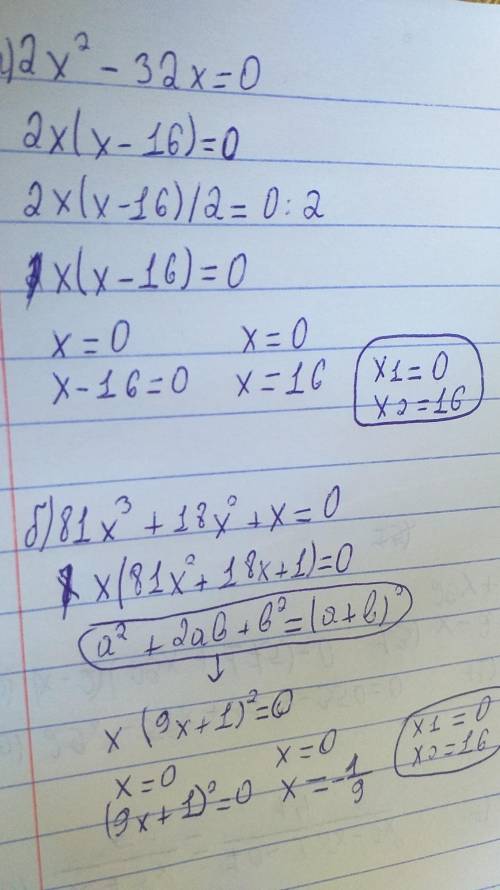 а) 2x² - 32x = 0
2x(x - 16) = 0
2x(x - 16)/2 = 0 : 2
x(x - 16) = 0
x = 0    x = 0
x - 16 = 0    x = 16
x1 = 0
x2 = 16
б) 81x³ + 18x² + x = 0
x(81x² + 18x + 1) = 0
a² + 2ab + b² = (a + b)²
↓
x (9x + 1)² = 0
x = 0    x = 0
(9x + 1)² = 0    x = -1/9
x1 = 0
x2 = 16